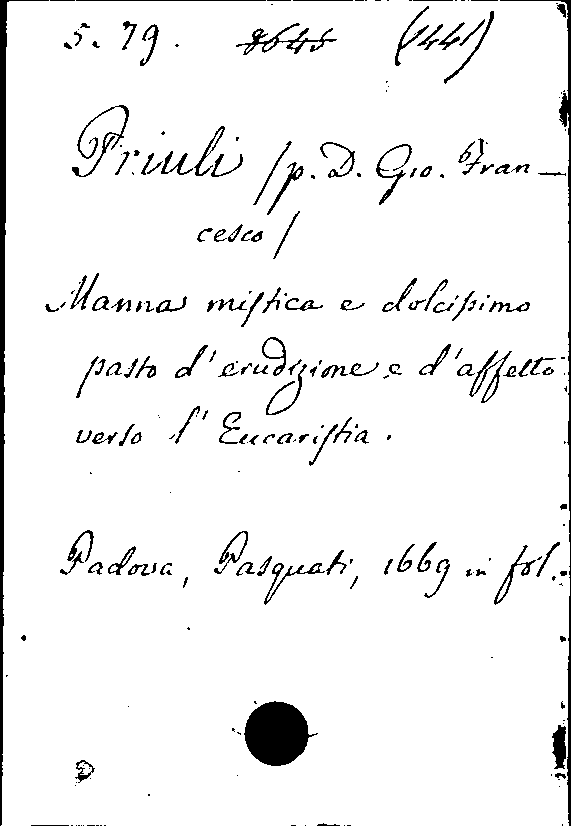 5. 79. 8645 (1441)
Priuli /p. D. Gio. Fran-
cesco/
Manna mistica e dolcissimo
pasto d'erudizione e d'affetto
verso l'Eucaristia.
Padova, Pasquati, 1669 in fol.